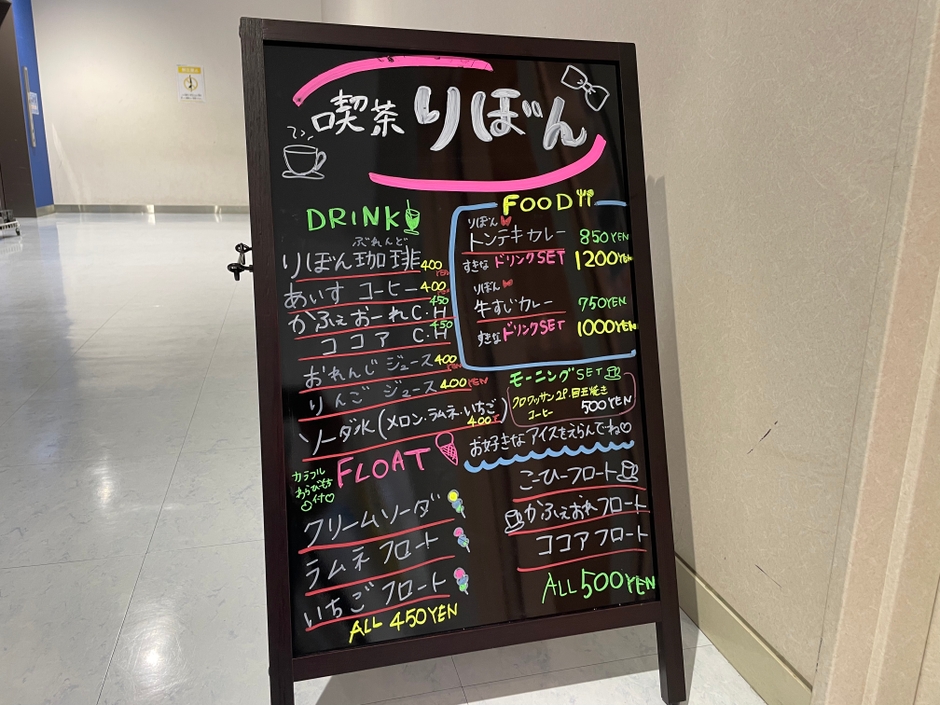 喫茶 りぼん
DRINK
ぶれんど
りぼん珈琲 400 YEN
あいす コーヒー 400 YEN
かふぇおーれ C.H 450
ココア C.H 450
おれんじ ジュース 400 YEN
りんご ジュース 400 YEN
ソーダ水(メロン・ラムネ・いちご)
400
FOOD
りぼん
トンテキカレー 850YEN
すきなドリンクSET 1200YEN
りぼん
牛すじカレー 750YEN
すきなドリンクSET 1000YEN
モーニングSET
クロワッサン2P・目玉焼き
コーヒー 500YEN
お好きなアイスをえらんでね♡
FLOAT
カラフル
わらびもち
付♡
クリームソーダ
ラムネ フロート
いちご フロート
ALL 450YEN
こーひーフロート
かふぇおれフロート
ココアフロート
ALL 500YEN